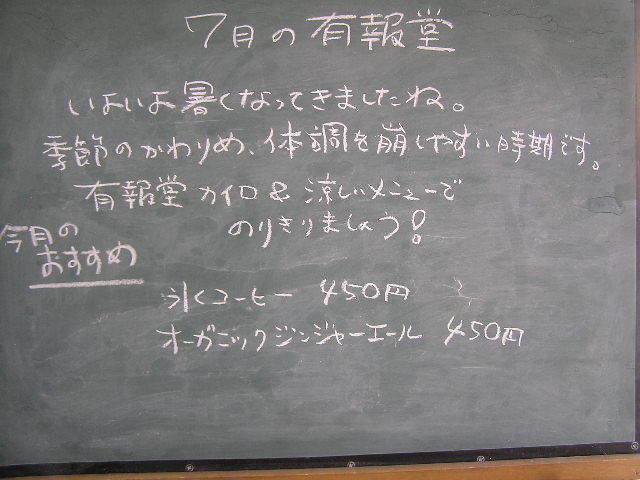 7月の有報堂
いよいよ暑くなってきましたね。
季節のかわりめ、体調を崩しやすい時期です。
有報堂カイロ&涼しいメニューで
のりきりましょう!
今月の
おすすめ
氷コーヒー 450円
オーガニックジンジャーエール 450円